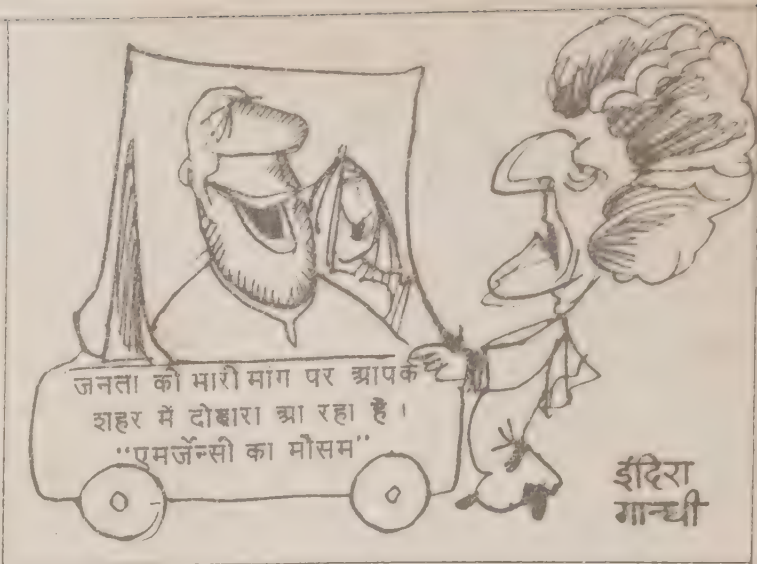 जनता की भारी मांग पर आपके
शहर में दोबारा आ रहा है।
"एमर्जेन्सी का मौसम"
इंदिरा
गान्धी